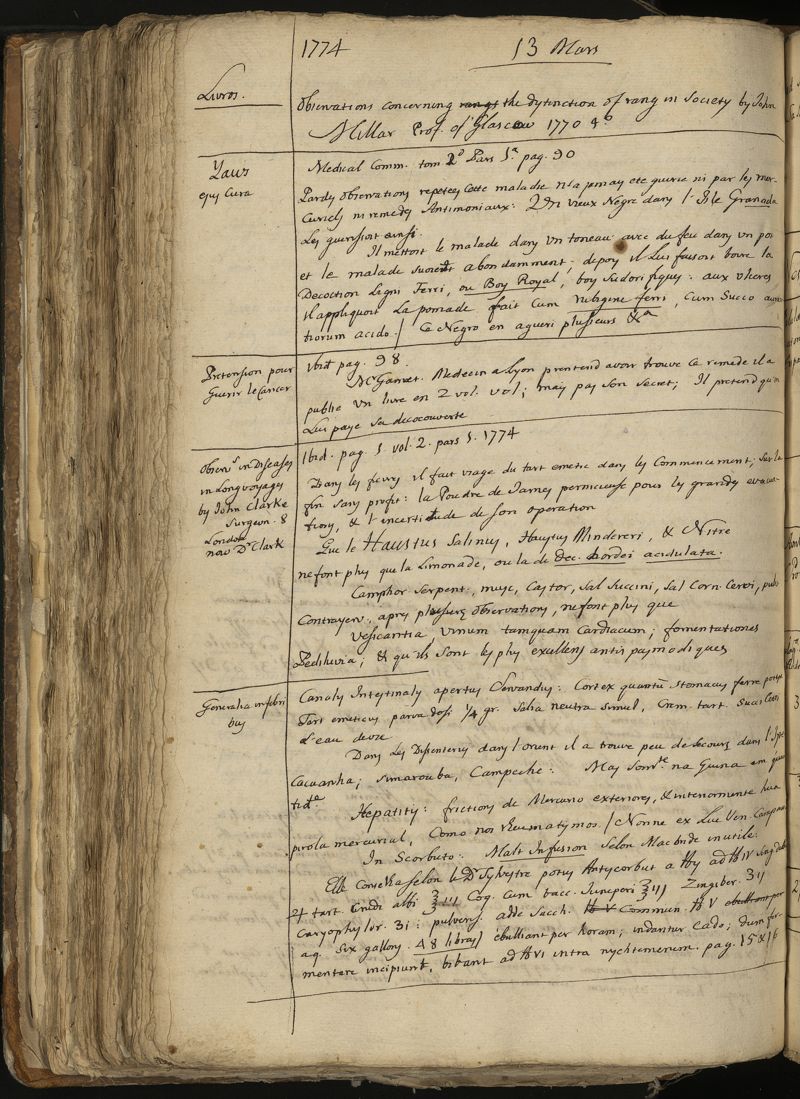 1774 13 Mars
Livros.
Observations concerning rangs the dytinction of rang in Society by John
Millar Prof. of Glascow 1770 4º
Yaws
ejus Cura
Medical Comm. tom 2º Pars 1ª pag. 90
Par des observations repetees Cette maladie n'a jamay ete guerie ni par les mer-
curiels ni remedes Antimoniaux: Un vieux Negre dans l'Isle Granada
Les guerissoit ainsi.
Il mettoit le malade dans un toneau avec du feu dans un pot
et le malade suoit abondamment; depuy il Lui faisoit boire la
Decoction Ligni Ferri, ou Boy Royal, boy Sudorifiques: aux ulceres
il appliquoit La pomade fait Cum rubigine ferri, Cum Succo auran-
tiorum acido. / Ce Negro en agueri plusieurs &ª
Pretension pour
Guerir le Cancer
Ibid pag. 98.
Mr Gamet. Medecin a Lyon prentend avoir trouve Ce remede il a
publie un livre en 2 vol. vol; may pay son secret; Il pretend qu'on
Lui paye sa decocouverte
Observs in Diseases
in Long voyages
by John Clarke
Surgeon. 8
London
now Dr Clark
Ibid. pag. 1. vol. 2. pars 1. 1774
Dans les fievres il fait usage du tart emetic dans les Commencement; sur la
fin sans profit: la Poudre de James pernicieuse pour les grandes evacua-
tions, & l'incertitude de son operation
Que le Haustus Salinus, Haustus Mindereri, & Nitre
ne font plus que la Limonade, ou la de dec. hordei acidulata.
Camphor Serpent., musc, Castor, Sal Succini, Sal Corn. Cervi, pulv
Contrayerv., apres plusieurs observations, ne font plus que
Vesicantia, vinum tamquam Cardiacum; fomentationes
Pediluvia; & qu'ils sont les plus excellens antispasmodiques
Generalia in febri
bus
Canalis Intestinalis apertus Servandus: Cortex quantũ Stomacus ferre potest
Tart emeticus parva dosi 1/4 gr. Salia neutra simul, Crem. tart. Succi Citri
L'eau
Dans Les Dissenteries dans l'orient il a trouve peu de secours dans l'Ipe
cacuanha; Simarouba, Campeche: May Somte na Guina em quan
tidª
Hepatitis: frictions de Mercurio exteriores, & interiormente hua
pirola mercurial, Como nos Rheumatismos. / Nonne ex Lue Ven.
In Scorbuto: Malt Infusion selon Macbride inutile.
Elle Conseilla selon le Dr Sylvestre potus Antiscorbut a ℔j ad ℔iv singul
♃ tart. Crudi albi ℥iii Coq. Cum bacc. Juniperi ℥iii Zingiber. ʒij
Caryophylor. ʒi: pulveris adde Sacch. ℔ V Commun. ℔ V ebulliant per
aq. Six gallons. 48 libras / ebulliant per horam; indantur Cado; dum fer-
mentare incipiunt, bibant ad ℔vi intra nychtemerum. pag. 15 & 16